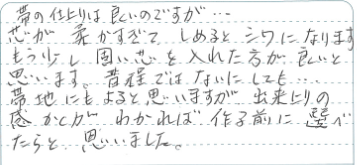 帯の仕上りは良いのですが…
芯が柔かすぎて しめると シワになります
もう少し 固い芯を入れた方が良いと
思います。昔程ではないにしても…
帯地にもよると思いますが 出来上りの
感かくが わかれば 作る前に 選べ
たらと 思いました。